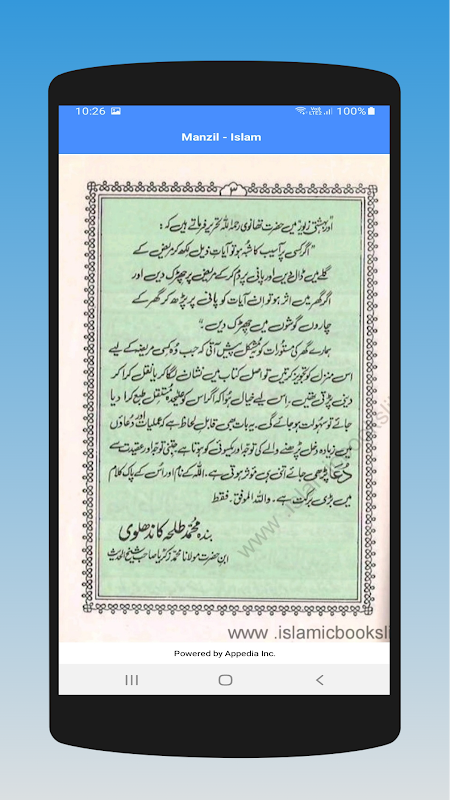 10:26
100%
Manzil - Islam
۳
اور بہشتی زیور میں حضرت تھانوی رحمہ اللہ تحریر فرماتے ہیں کہ :
"اگر کسی پر آسیب کا شبہ ہو تو آیات ذیل لکھ کر مریض کے
گلے میں ڈال دیں اور پانی پر دم کر کے مریض پر چھڑک دیں اور
اگر گھر میں اثر ہو تو ان آیات کو پانی پر پڑھ کر گھر کے
چاروں گوشوں میں چھڑک دیں۔"
ہمارے گھر کی مستورات کو مشکل پیش آتی کہ جب وہ کسی مریضہ کے لیے
اس منزل کو تجویز کرتیں تو اصل کتاب میں نشان لگا کر یا نقل کرا کر
دینی پڑتی تھیں۔ اس لیے خیال ہوا کہ اگر اس کو علیحدہ مستقل طبع کرا دیا
جائے تو سہولت ہو جائے گی۔ یہ بات بھی قابل لحاظ ہے کہ عملیات اور دعاؤں
میں زیادہ دخل پڑھنے والے کی توجہ اور یکسوئی کو ہوتا ہے جتنی توجہ اور عقیدت سے
دعا پڑھی جائے اتنی ہی مؤثر ہوتی ہے۔ اللہ کے نام اور اس کے پاک کلام
میں بڑی برکت ہے۔ واللہ الموفق۔ فقط
بندہ محمد طلحہ کاندھلوی
ابن حضرت مولانا محمد زکریا صاحب شیخ الحدیث
www .islamicbooksli
www .islamicbooksli
Powered by Appedia Inc.